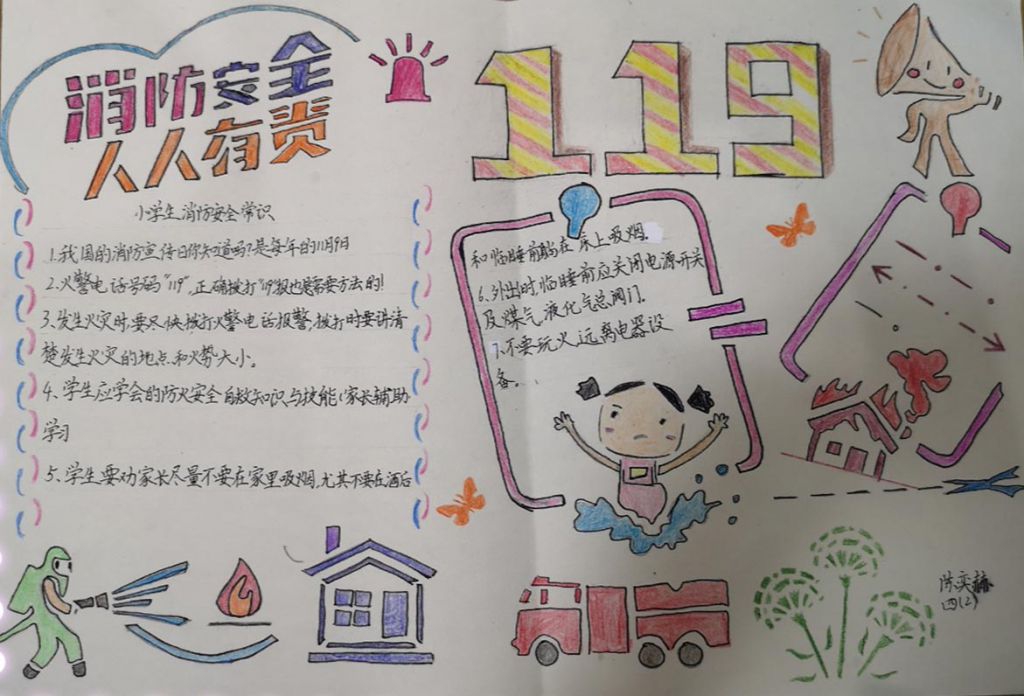 消防安全
人人有责
119
小学生消防安全常识
1.我国的消防宣传日你知道吗?是每年的11月9日
2.火警电话号码“119”,正确拨打“119”报也是需要方法的!
3、发生火灾时,要尽快拨打火警电话报警,拨打时要讲清
楚发生火灾的地点和火势大小。
4、学生应学会的防火安全自救知识与技能(家长辅助
学习
5、学生要劝家长尽量不要在家里吸烟,尤其不要在酒后
和临睡前躺在床上吸烟.
6、外出时,临睡前应关闭电源开关
及煤气液化气总阀门.
7.不要玩火,远离电器设
备。
四(2)